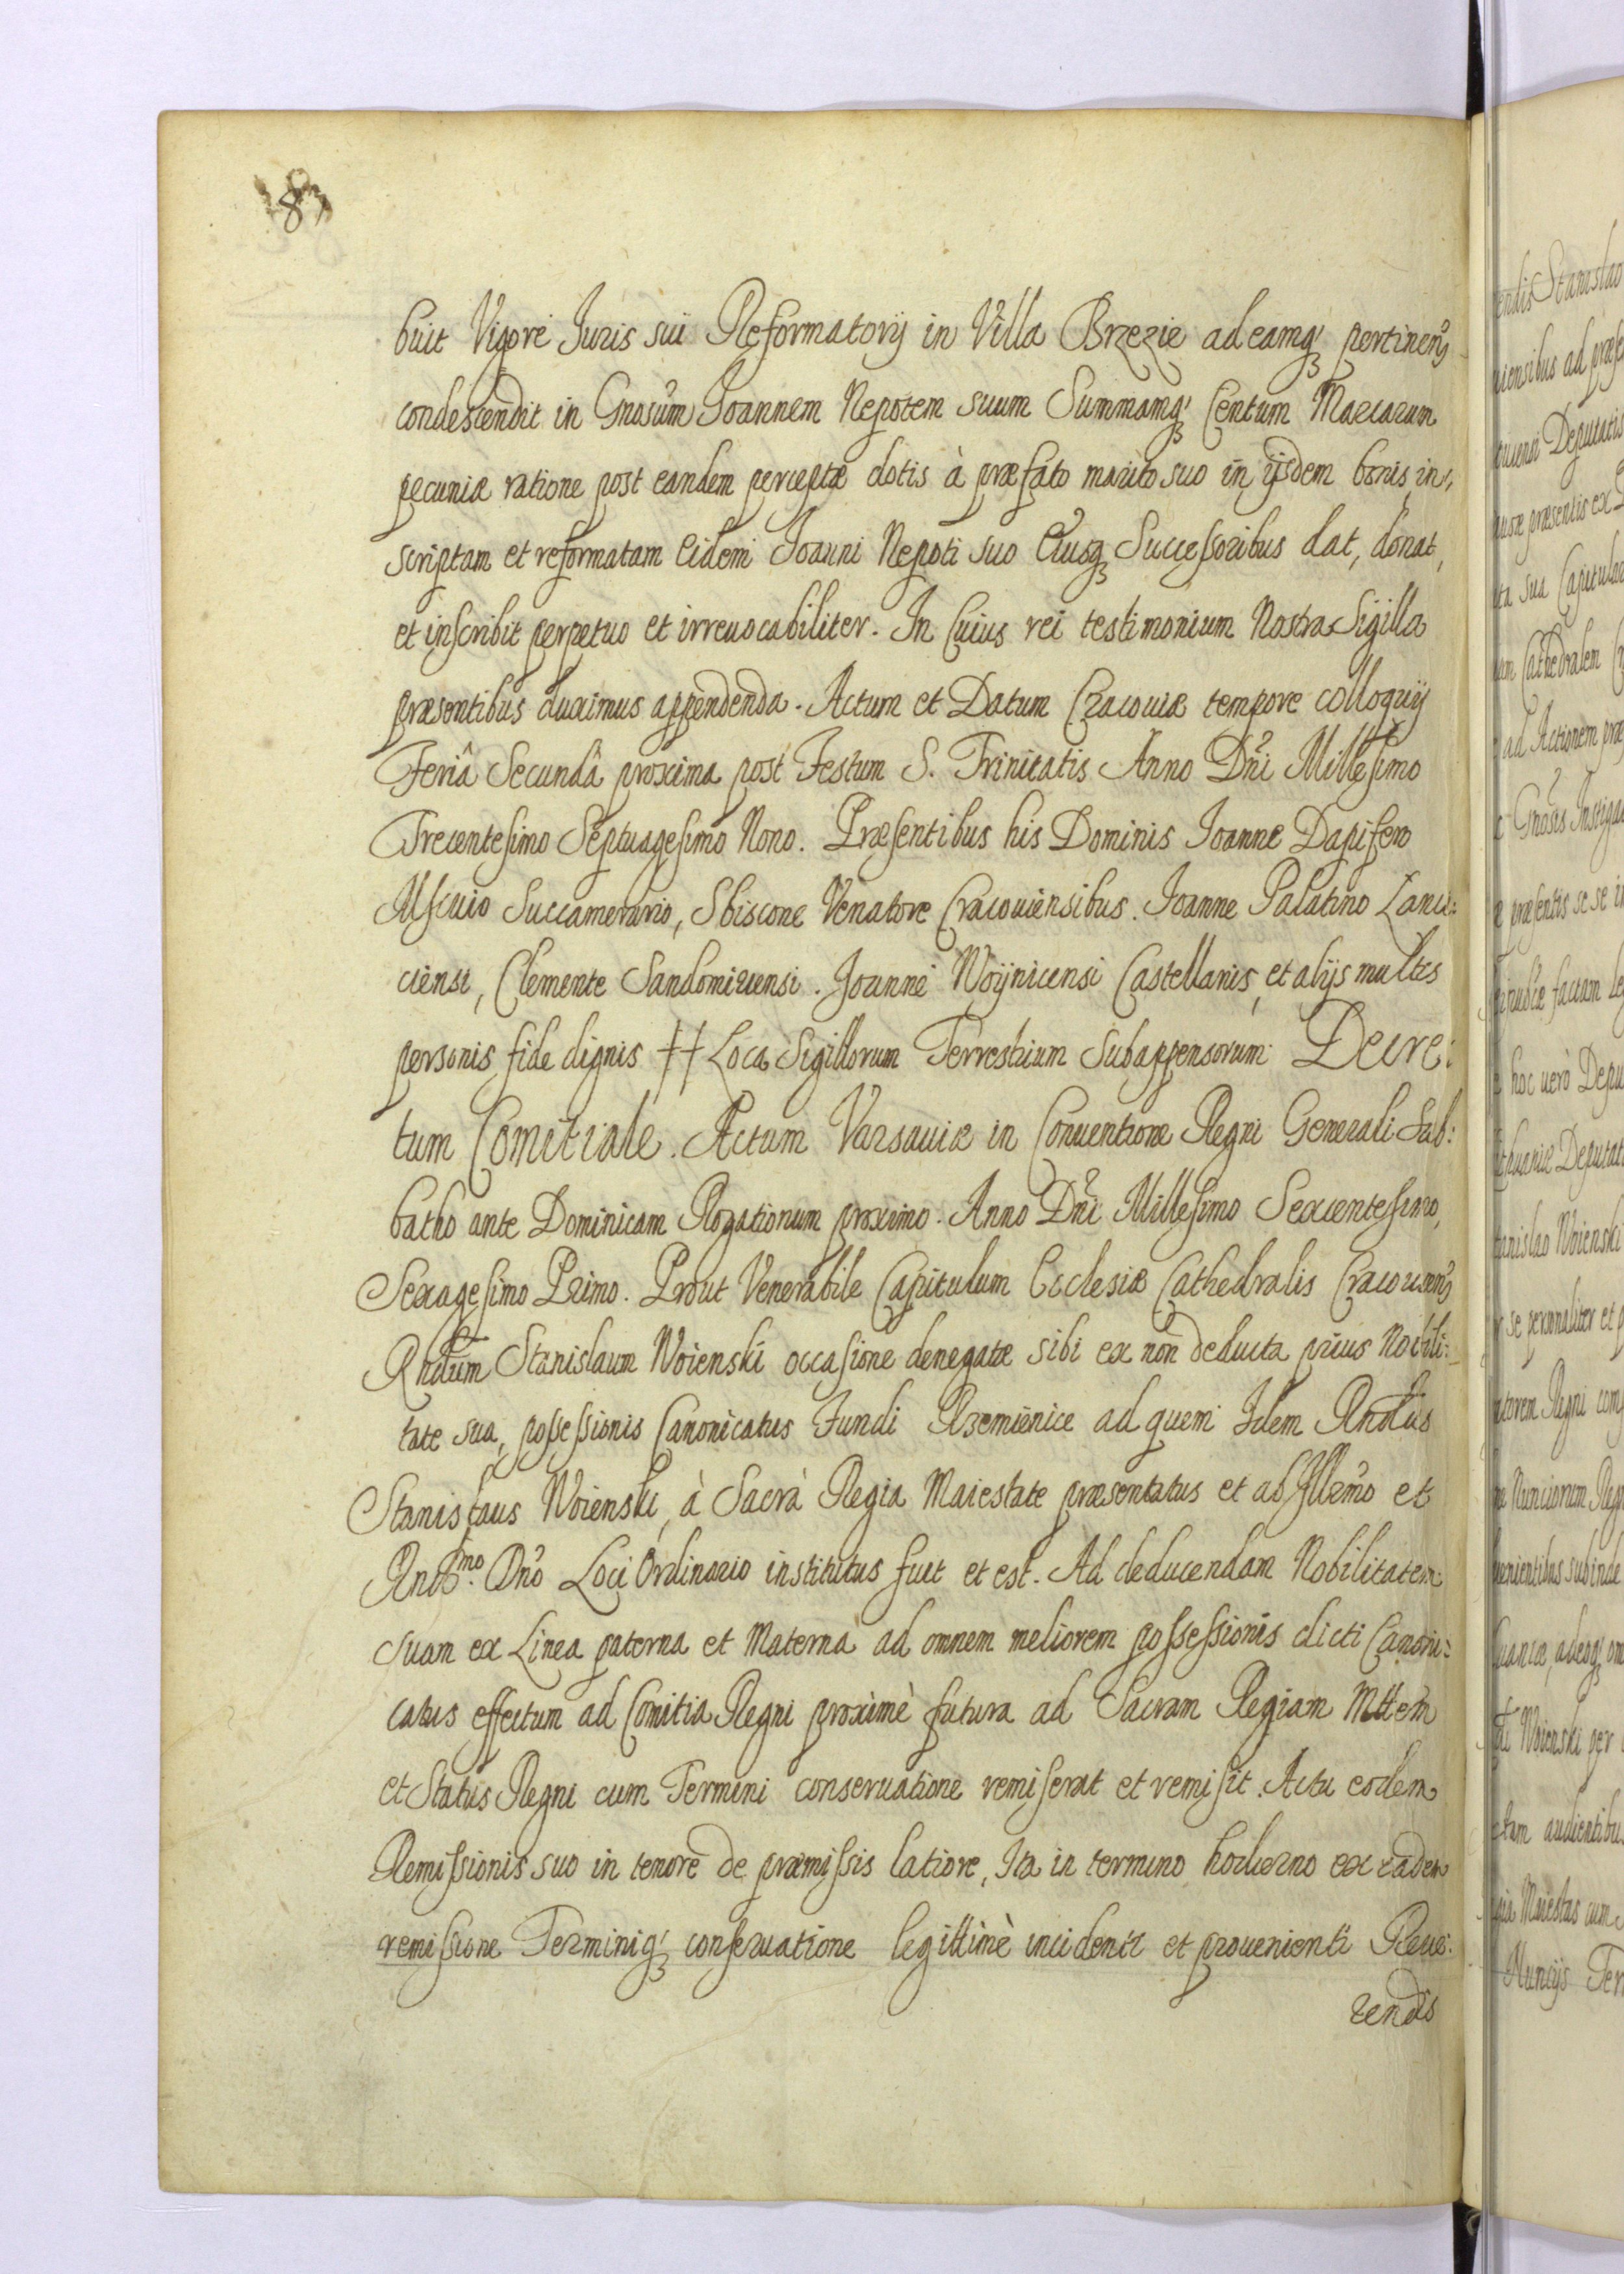 183
buit Vigore Iuris sui Reformatorij in Villa Brzezie ad eamq3 pertinen̄
condescendit in Gnosum Joannem Nepotem suum Summamq3 Centum Marcarum
pecuniæ ratione post eandem perceptæ dotis à præfato marito suo in ijsdem bonis in,
scriptam et reformatam Eidem Joanni Nepoti suo Eiusq3 Successoribus dat, donat,
et inscribit perpetuo et irreuocabiliter. In Cuius rei testimonium Nostra Sigilla
præsentibus duximus appendenda. Actum et Datum Cracouiæ tempore colloquij
Feriâ Secundâ proxima post Festum S. Trinitatis Anno Dn̄i Millesimo
Trecentesimo Septuagesimo Nono. Præsentibus his Dominis Ioanne Dapifero
Msciuio Succamerario, Sbiscone Venatore Cracouiensibus. Ioanne Palatino Lanci:
ciensi, Clemente Sandomiriensi. Joanne Woÿnicensi Castellanis, et alijs multis
personis fide dignis ǂǂ Loca Sigillorum Terrestrium Subappensorum. Decre:
tum Comitiale. Actum Varsauiæ in Conuentione Regni Generali Sab:
batho ante Dominicam Rogationum proximo. Anno Dn̄i Millesimo Sexcentesimo,
Sexagesimo Primo. Prout Venerabile Capitulum Ecclesiæ Cathedralis Cracouien̄
Rndum Stanislaum Woienski occasione denegatæ sibi ex non deducta prius Nobili:
tate sua, possessionis Canonicatus Fundi Krzemienice ad quem Idem Rndus
Stanislaus Woienski, à Sacrà Regia Maiestate præsentatus et ab Illmo et
Rndmo. Dno Loci Ordinario institutus fuit et est. Ad deducendam Nobilitatem
suam ex Linea paterna et Materna ad omnem meliorem possessionis dicti Canoni:
catus effectum ad Comitia Regni proximè futura ad Sacram Regiam Mttem
et Status Regni cum Termini conseruatione remiserat et remisit. Actu eodem
Remissionis suo in tenore de præmissis latiore, Ita in termino hodierno ex eadem
remissione Terminiq3 conseruatione legittimè incidenti et prouenienti Reue:
rendis